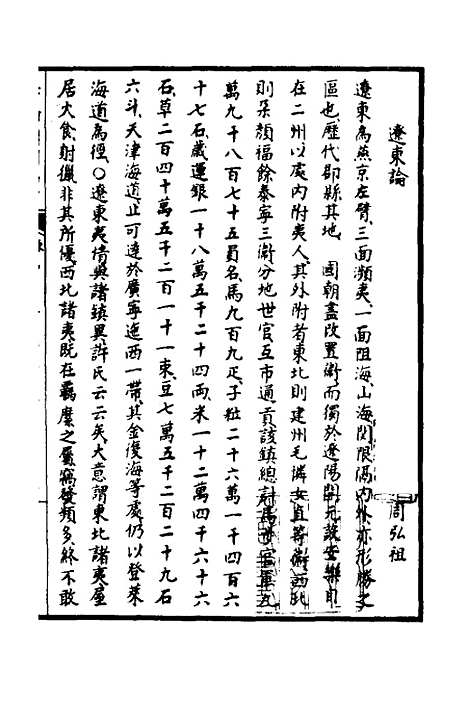 遼東論
周弘祖
遼東為燕京左臂、三面瀕夷、一面阻海、山海関限隔内外、亦形勝之
區也、歷代郡縣其地、國朝盡改置衛、而獨於遼陽開元設安樂自
在二州、以處内附夷人、其外附者、東北則建州毛憐女直等衛、西北
則朵顏福餘泰寧三衛、分地世官、互市通貢、該鎮總計馬步官軍九
萬九千八百七十五員名、馬九百九疋、子粒二十六萬一千四百六
十七石、歲運銀一十八萬五千二十四兩、米一十二萬四千六十六
石、草二百四十萬五千二百一十一束、豆七萬五千二百二十九石
六斗、天津海道、止可達於廣寧迤西一帶、其金復海等處、仍以登萊
海道為徑、〇遼東夷情與諸鎮異、許氏云云矣、大意謂東北諸夷、屋
居火食、射獵非其所優、西北諸夷、既在羈縻之屬、竊發頻多、終不敢